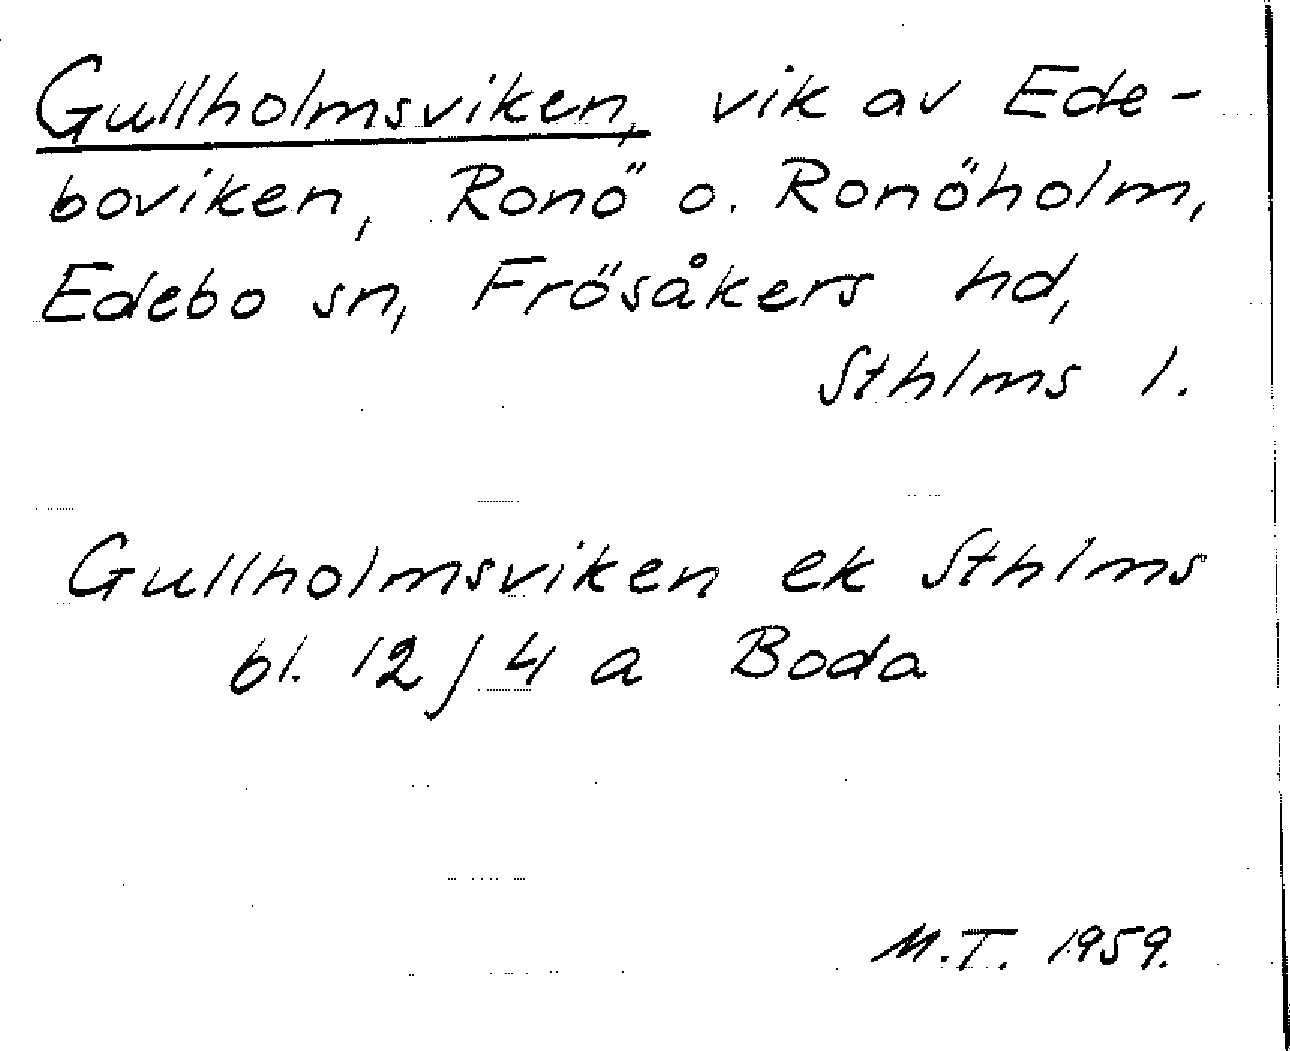 Gullholmsviken, vik av Ede-
boviken, Ronö o. Ronöholm,
Edebo sn, Frösåkers hd,
Sthlms l.
Gullholmsviken ek Sthlms
bl. 12 J 4 a Boda
M.T. 1959.